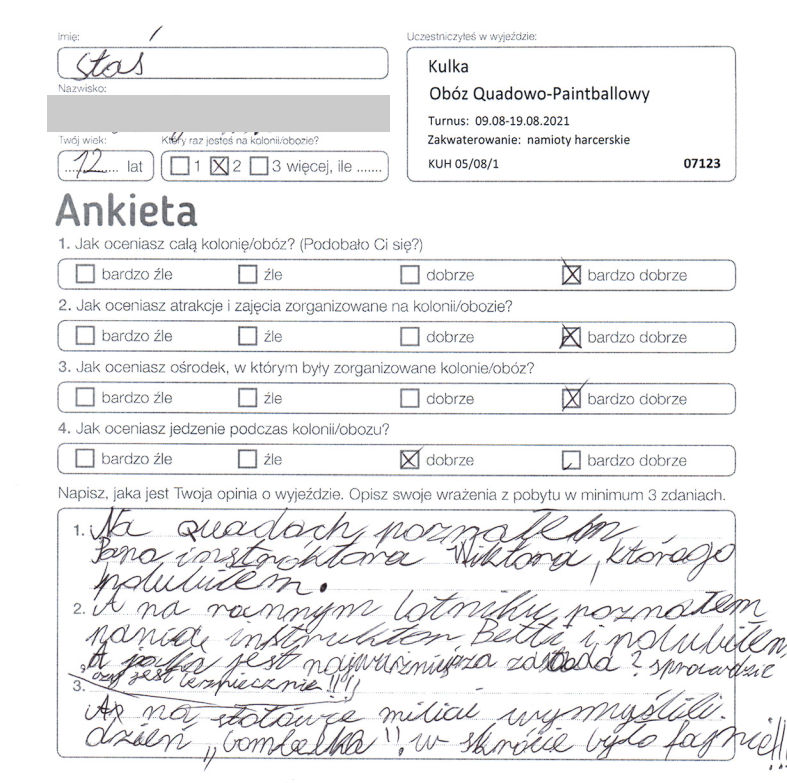 Imię:
Staś
Nazwisko:
Twój wiek:
12 lat
Który raz jesteś na kolonii/obozie?
1 ☒ 2 3 więcej, ile .......
Uczestniczyłeś w wyjeździe:
Kulka
Obóz Quadowo-Paintballowy
Turnus: 09.08-19.08.2021
Zakwaterowanie: namioty harcerskie
KUH 05/08/1 07123
Ankieta
1. Jak oceniasz całą kolonię/obóz? (Podobało Ci się?)
☐ bardzo źle ☐ źle ☐ dobrze ☒ bardzo dobrze
2. Jak oceniasz atrakcje i zajęcia zorganizowane na kolonii/obozie?
☐ bardzo źle ☐ źle ☐ dobrze ☒ bardzo dobrze
3. Jak oceniasz ośrodek, w którym były zorganizowane kolonie/obóz?
☐ bardzo źle ☐ źle ☐ dobrze ☒ bardzo dobrze
4. Jak oceniasz jedzenie podczas kolonii/obozu?
☐ bardzo źle ☐ źle ☒ dobrze ☐ bardzo dobrze
Napisz, jaka jest Twoja opinia o wyjeździe. Opisz swoje wrażenia z pobytu w minimum 3 zdaniach.
1. Na quadach poznałem
Pana instruktora Wiktora, którago
polubiłem.
2. A na rannym lotniku poznałem
panią instruktor Betti i polubiłem
A jaka jest najważniejsza zasada? sprawdzić
czy jest bezpiecznie!!!!
3. Ap na stołówce miliai wymyślili.
dzień „bombelka"!, w skrócie było fajnie!!!